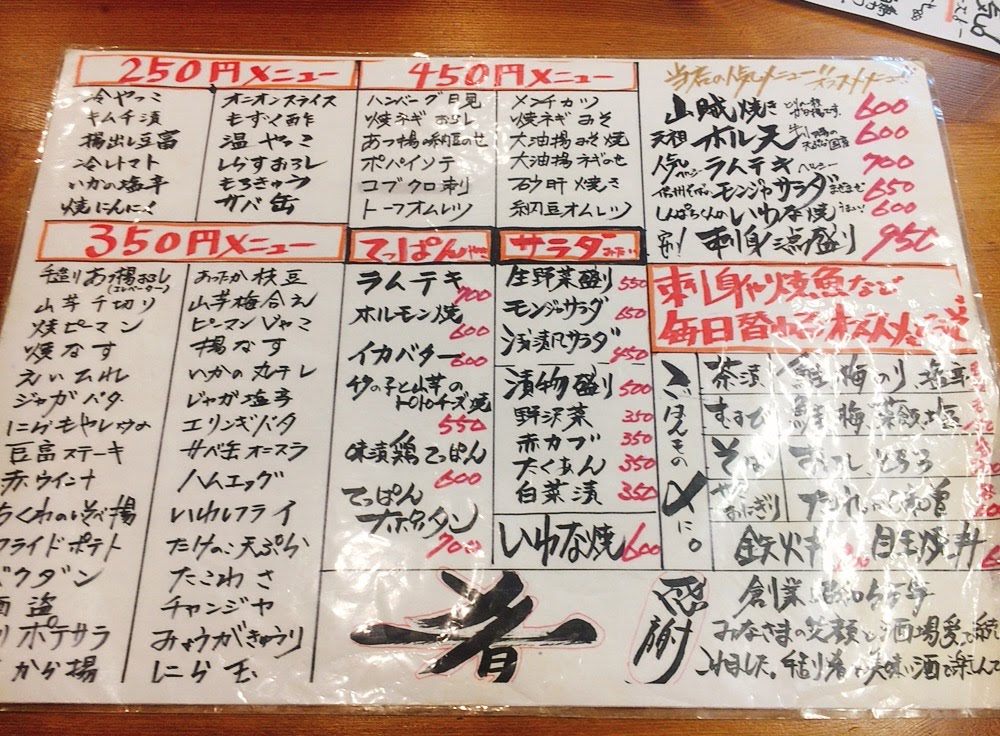 250円メニュー
冷やっこ
キムチ漬
揚出し豆富
冷しトマト
いかの塩辛
焼にんにく
オニオンスライス
もずく酢
温やっこ
しらすおろし
もろきゅう
サバ缶
450円メニュー
ハンバーグ月見
焼ネギおろし
あつ揚納豆のせ
ポパイソテ
コブクロ刺
トーフオムレツ
メンチカツ
焼ネギみそ
大油揚みそ焼
大油揚ネギのせ
砂肝焼き
納豆オムレツ
当店の人気メニュー
山賊焼き 600
元祖 ホル天 600
人気 ヘルシー ラムテキ ヘルシー 700
モンジャサラダ 650
いわな焼 600
刺身点盛り 950
350円メニュー
手造りあつ揚おろし
山芋千切り
焼ピーマン
焼なす
えいひれ
ジャガバター
にらもやしいため
巨富ステーキ
赤ウインナ
ちくわのいそべ揚
フライドポテト
バクダン
酒盗
ポテサラ
から揚
あったか枝豆
山芋梅合え
ピーマンじゃこ
揚なす
いかの丸干し
じゃが塩辛
エリンギバタ
サバ缶オースラ
ハムエッグ
いわしフライ
たけのこ天ぷら
たこわさ
チャンジャ
みょうがきゅうり
にら玉
てっぱんやき
ラムテキ 700
ホルモン焼 600
イカバター 600
竹の子と山芋の
トロトロチーズ焼 550
味漬鶏てっぱん 600
てっぱん
ホタタン 700
サラダ
生野菜盛り 550
モンジャサラダ 650
浅漬風サラダ 450
漬物盛り 500
野沢菜 350
赤カブ 350
たくあん 350
白菜漬 350
いわな焼 600
刺身や焼魚など
毎日替わるオススメもどうぞ
ごはんもの
〆に。
茶漬 鮭 梅 のり 塩辛
むすび 鮭 梅
そば おろし とろろ
おにぎり
鉄火丼 目玉焼丼
肴
感謝
創業昭和
みなさまの笑顔と酒場愛で
手造り肴と美味い酒で楽しんで